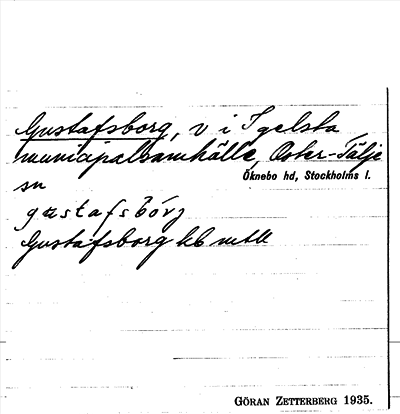 Gustafsborg, v i Igelsta
municipalsamhälle, Öster-Tälje
sn
Öknebo hd, Stockholms l.
gustafsbórj
Gustafsborg hb mtll
GÖRAN ZETTERBERG 1935.